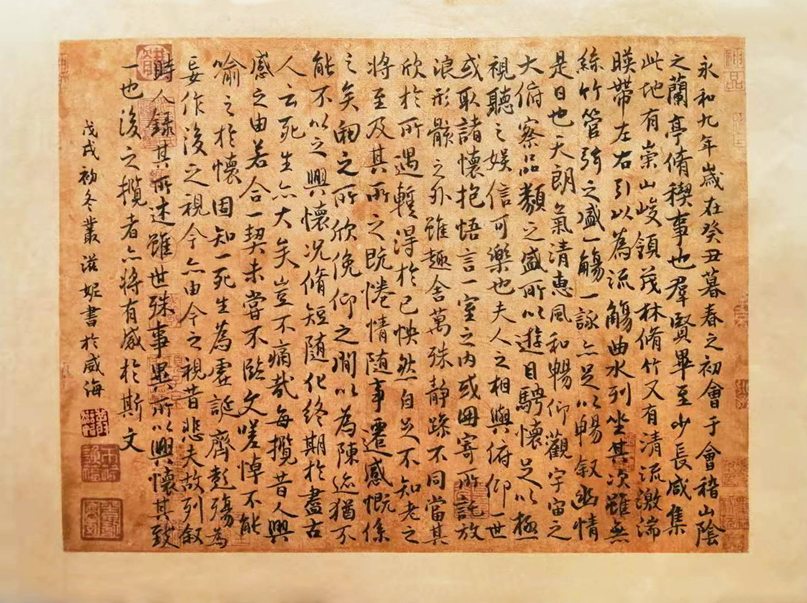 永和九年歲在癸丑暮春之初會于會稽山陰
之蘭亭脩稧事也羣賢畢至少長咸集
此地有崇山峻領茂林脩竹又有清流激湍
暎帶左右引以為流觴曲水列坐其次雖無
絲竹管弦之盛一觴一詠亦足以暢叙幽情
是日也天朗氣清惠風和暢仰觀宇宙之
大俯察品類之盛所以遊目騁懷足以極
視聽之娛信可樂也夫人之相與俯仰一世
或取諸懷抱悟言一室之内或因寄所託放
浪形骸之外雖趣舍萬殊静躁不同當其
欣於所遇暫得於己怏然自足不知老之
將至及其所之既惓情隨事遷感慨係
之矣向之所欣俛仰之閒以為陳迹猶不
能不以之興懷况脩短隨化終期於盡古
人云死生亦大矣豈不痛哉每攬昔人興
感之由若合一契未嘗不臨文嗟悼不能
喻之於懷固知一死生為虛誕齊彭殤為
妄作後之視今亦由今之視昔悲夫故列叙
時人錄其所述雖世殊事異所以興懷其致
一也後之攬者亦將有感於斯文
戊戌初冬叢滋妮書於威海